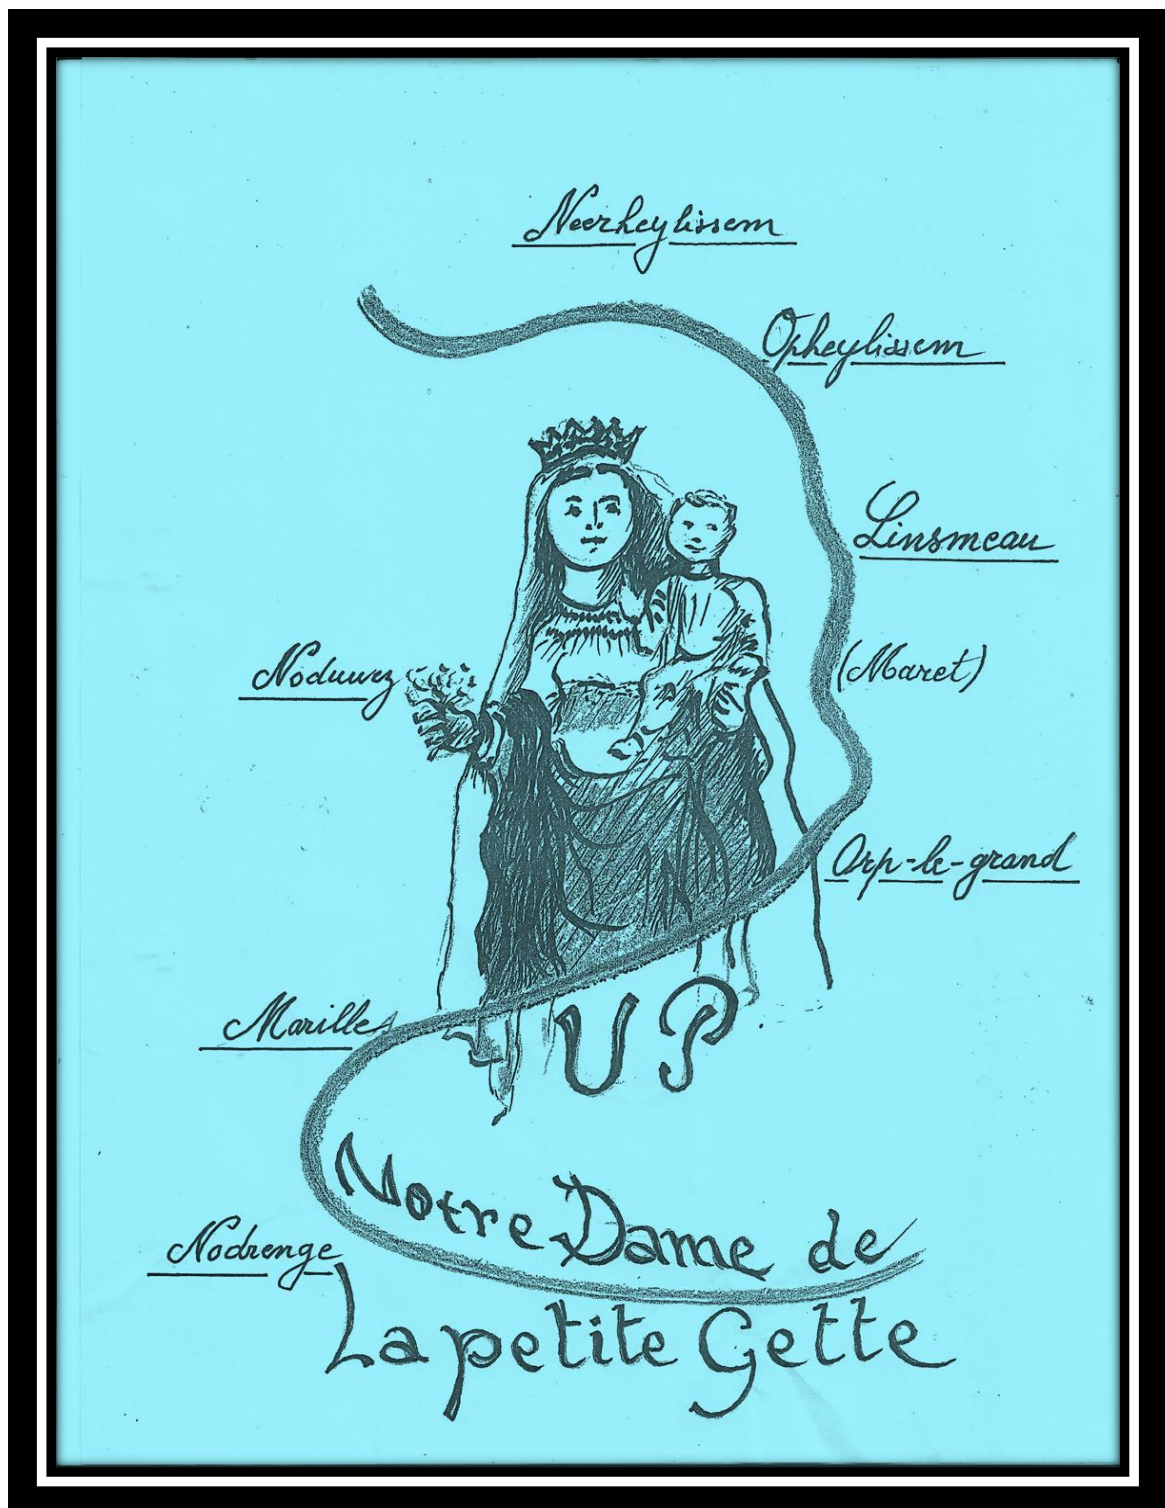 Neerheylissem
Opheylissem
Linsmeau
Noduwez
(Maret)
Orp-le-grand
Marilles
UP
Notre Dame de
Nodrenge
La petite Gette